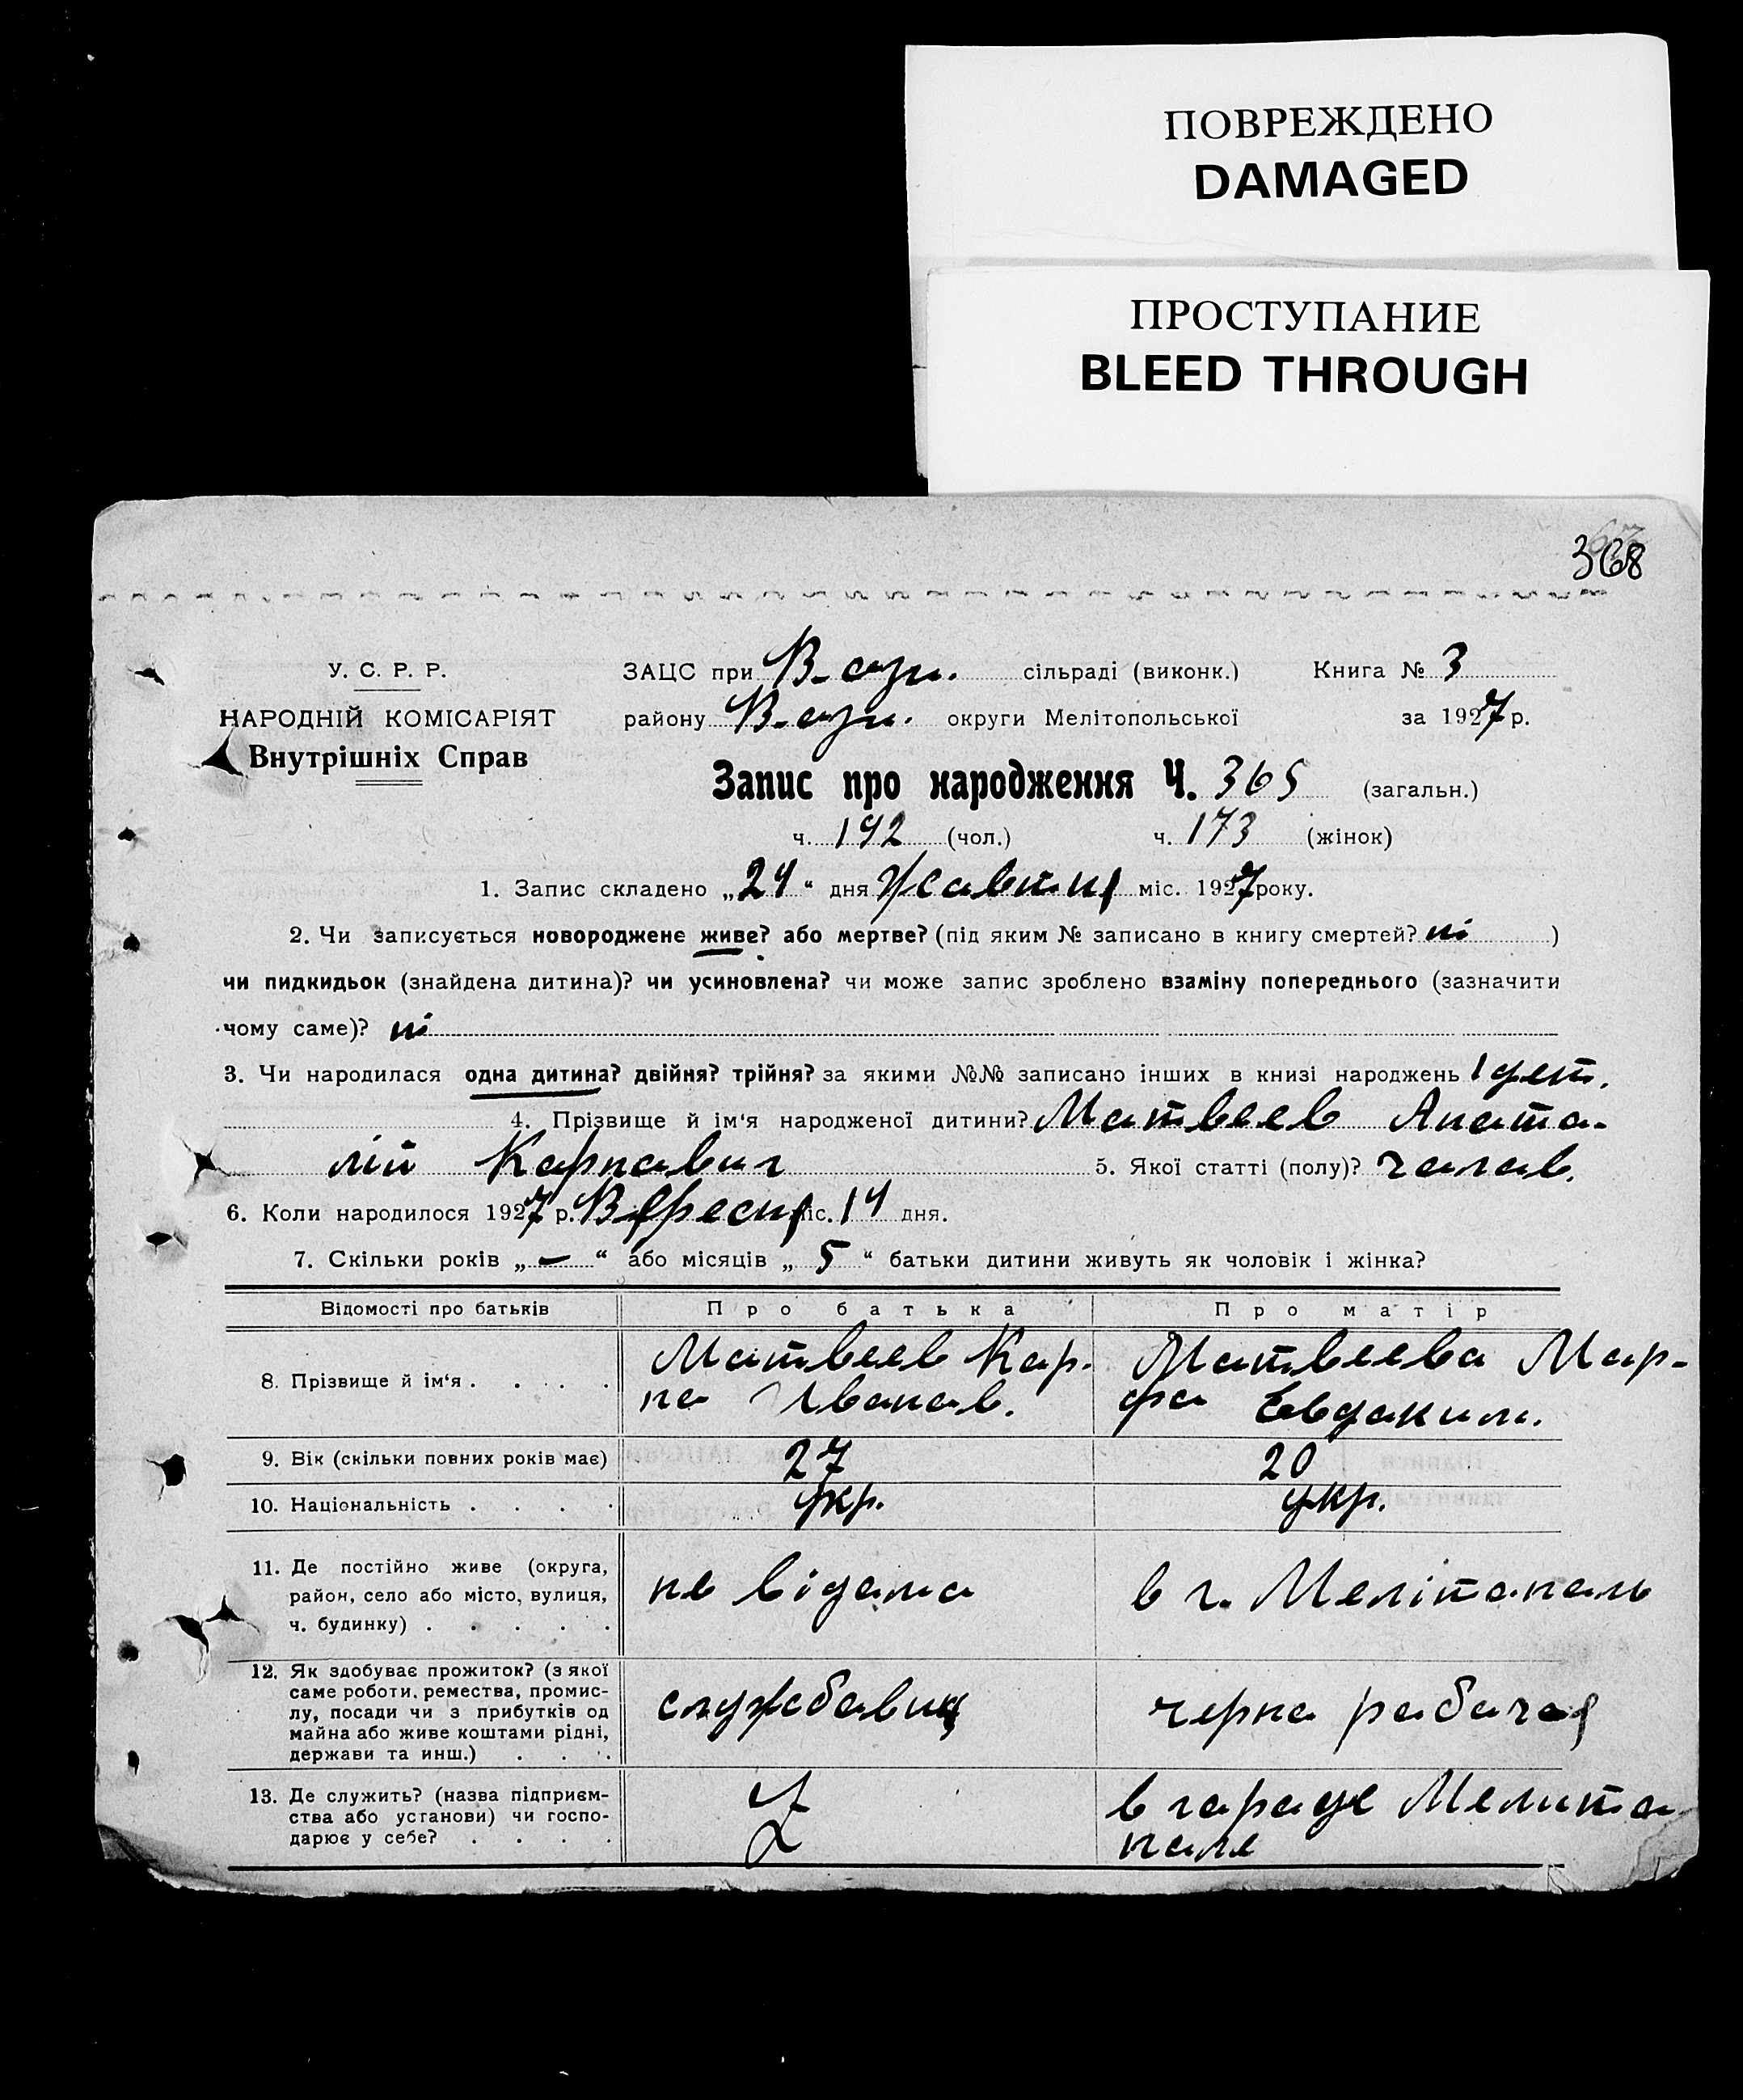 ПОВРЕЖДЕНО
DAMAGED
ПРОСТУПАНИЕ
BLEED THROUGH
368
У. С. Р. Р.
НАРОДНІЙ КОМІСАРІЯТ
Внутрішніх Справ
ЗАЦС при В-озн. сільраді (виконк.) Книга № 3
району В-озн. округи Мелітопольської за 1927 р.
Запис про народження Ч. 365 (загальн.)
ч. 192 (чол.) ч. 173 (жінок)
1. Запис складено „24“ дня Жовтня міс. 1927 року.
2. Чи записується новороджене живе? або мертве? (під яким № записано в книгу смертей? ні )
чи пидкидьок (знайдена дитина)? чи усиновлена? чи може запис зроблено взаміну попереднього (зазначити
чому саме)? ні
3. Чи народилася одна дитина? двійня? трійня? за якими №№ записано інших в книзі народжень 1 дит.
4. Прізвище й ім‘я народженої дитини? Матвеев Анато-
лій Карпович 5. Якої статті (полу)? чолов.
6. Коли народилося 1927 р. Вересня міс. 14 дня.
7. Скільки років „—“ або місяців „5“ батьки дитини живуть як чоловік і жінка?
Відомості про батьків Про батька Про матір
8. Прізвище й ім‘я . . . . . Матвеев Кар-по Іванов. Матвеева Мар-фа Евдоким.
9. Вік (скільки повних років має) 27 20
10. Національність . . . . укр. укр.
11. Де постійно живе (округа, район, село або місто, вулиця, ч. будинку) . . . . . не відомо в г. Мелітополь
12. Як здобуває прожиток? (з якої саме роботи, ремества, промис-лу, посади чи з прибутків од майна або живе коштами рідні, держави та инш.) . . . службовиц черна робочая
13. Де служить? (назва підприєм-ства або установи) чи госпо-дарює у себе? . . . . в городе Мелито-поле